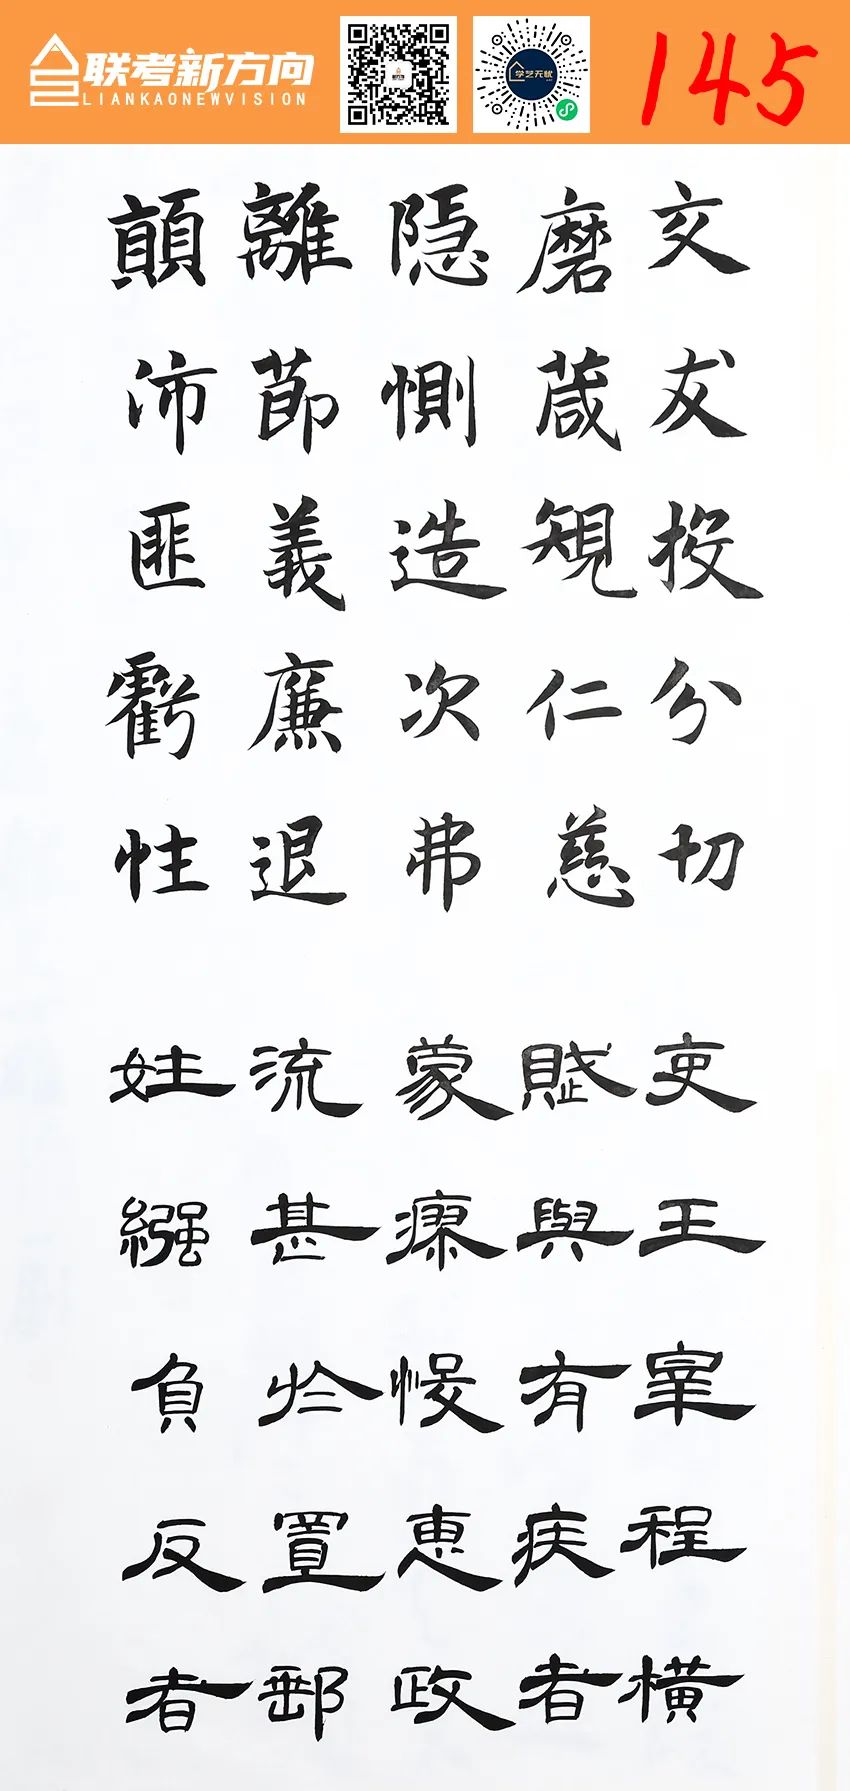 联考新方向
LIANKAONEWVISION
学艺无忧
145
交友投分切
磨箴規仁慈
隱惻造次弗
離節義廉退
顛沛匪虧性
吏王宰程橫
賦與有疾者
蒙瘳悛惠政
流甚於置郵
姓繦負反者